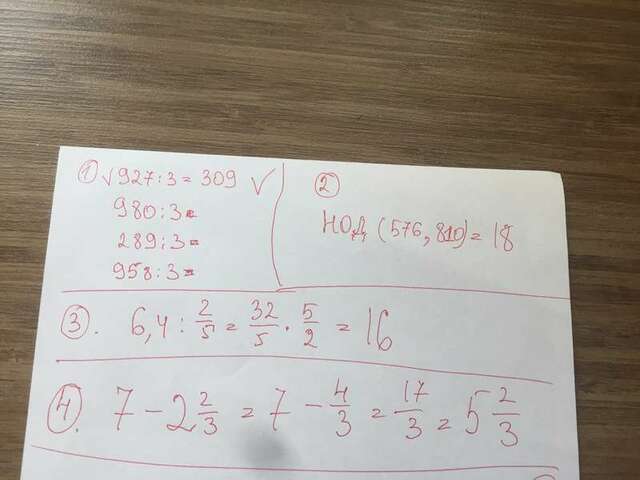 ① √ 927 : 3 = 309 √
980 : 3 =
289 : 3 =
958 : 3 =
②
НОД (576, 810) = 18
③. 6,4 : 2/5 = 32/5 · 5/2 = 16
④. 7 - 2 2/3 = 7 - 4/3 = 17/3 = 5 2/3